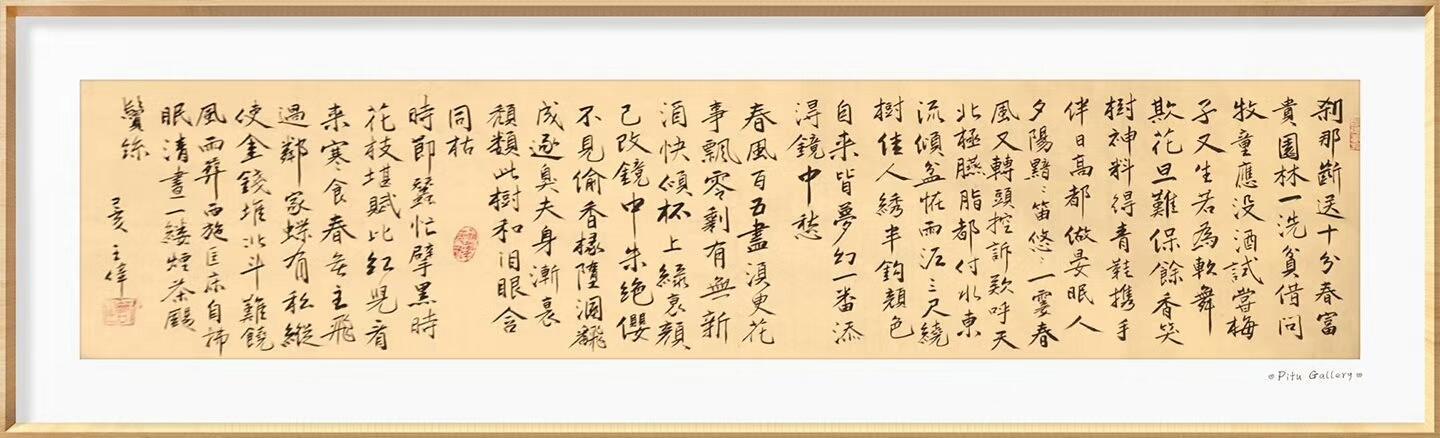 刹那斷送十分春富
貴園林一洗貧借問
牧童應没酒試嘗梅
子又生若為軟舞
欺花旦難保餘香笑
樹神料得青鞋攜手
伴日高都做晏眠人
夕陽黯〻笛悠〻一霎春
風又轉頭控訴欵呼天
北極臙脂都付水東
流傾盆怪雨泥三尺繞
樹佳人綉半鈎顏色
自来皆夢幻一番添
淂鏡中愁
春風百五盡湏更花
事飄零剩有無新
酒快傾杯上綠衰顏
已改鏡中朱絕纓
不見偷香掾墮溷翻
成逐臭夫身漸衰
頹類此樹和泪眼合
同枯
時節蠶忙擘黑時
花枝堪賦比紅兒看
来寒食春無主飛
過鄰家蝶有私縱
使金錢堆北斗難饒
風雨葬西施匡床自
眠清晝一縷煙茶颺
鬢絲
己亥
Pitu Gallery